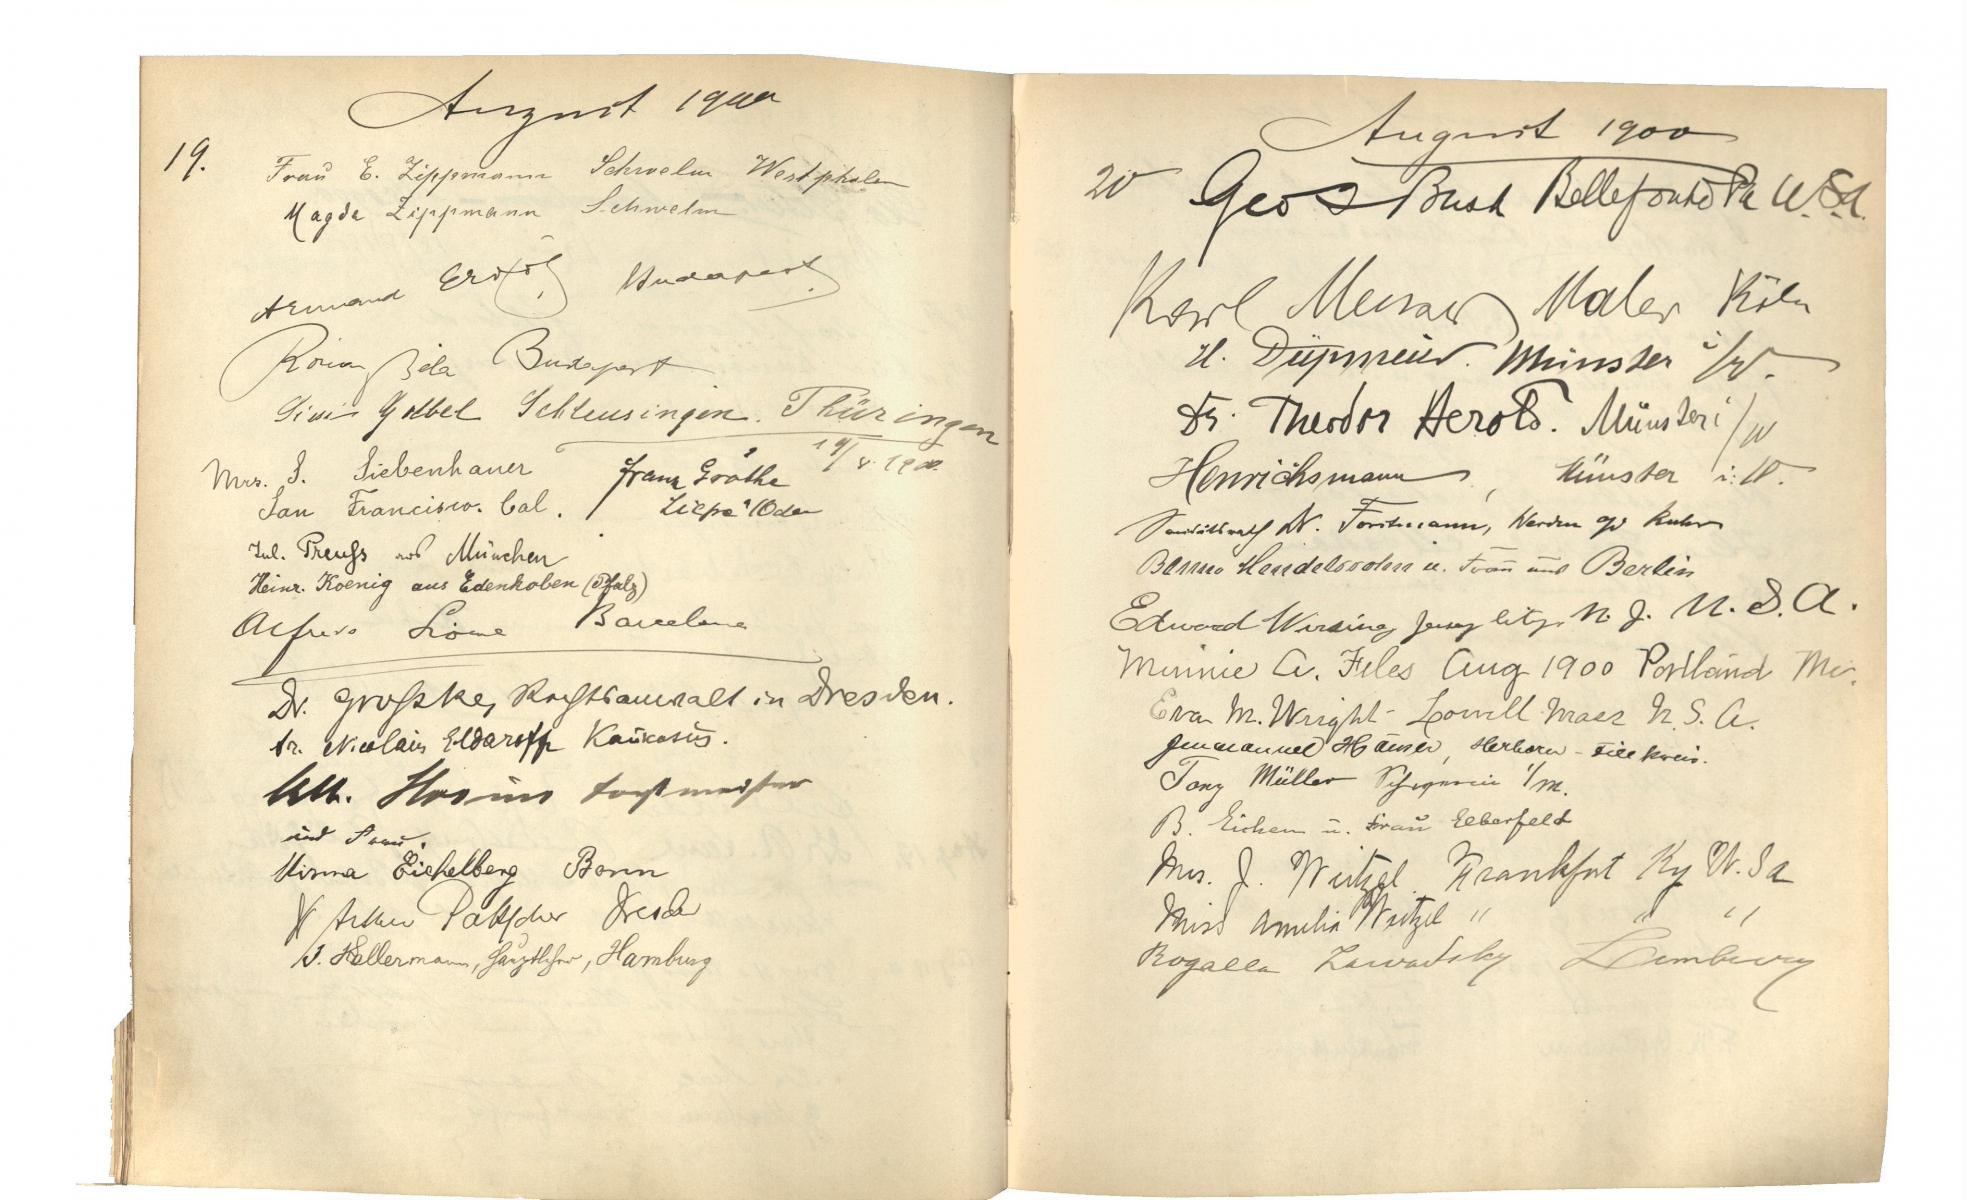 August 1900
19.
Frau E. Zippmann Schwelm Westphalen
Magda Zippmann Schwelm
Armand Budapest.
Béla Budapest
Schleusingen. Thüringen
19/8. 1900.
Mrs. S. Siebenhauer
San Francisco. Cal.
Franz Gröthe
Jul. Preuß aus München
Heinr. Koenig aus Edenkoben (Pfalz)
Alfredo Barcelona
Dr. Großke, Rechtsanwalt in Dresden.
Dr. Nicolaus Eldaroff Kaukasus.
Forstmeister
und Frau.
Eichelberg Bonn
Arthur Dresden
J. Hellermann, Hamburg
August 1900
20
Geo Bush Bellefonte Pa U.S.A.
Karl Maler Köln
H. Münster i/W.
Dr. Theodor Herold. Münster i/W
Henrichsmann, Münster i. W.
Sanitätsrath Dr. Forstmann, Werden a/d Ruhr
Benno u. Frau aus Berlin
Edward Wirsing Jersey City, N. J. U. S. A.
Minnie A. Files Aug 1900 Portland Me.
Eva M. Wright - Lowell Mass U. S. A.
Herborn - Dillkreis.
Tony Müller Schwerin i/M.
B. Eichem u. Frau Elberfeld
Mrs. J. Weitzel. Frankfort Ky U. S a
Miss Amelia Weitzel " " "
Rogalla Zawadsky Lemberg